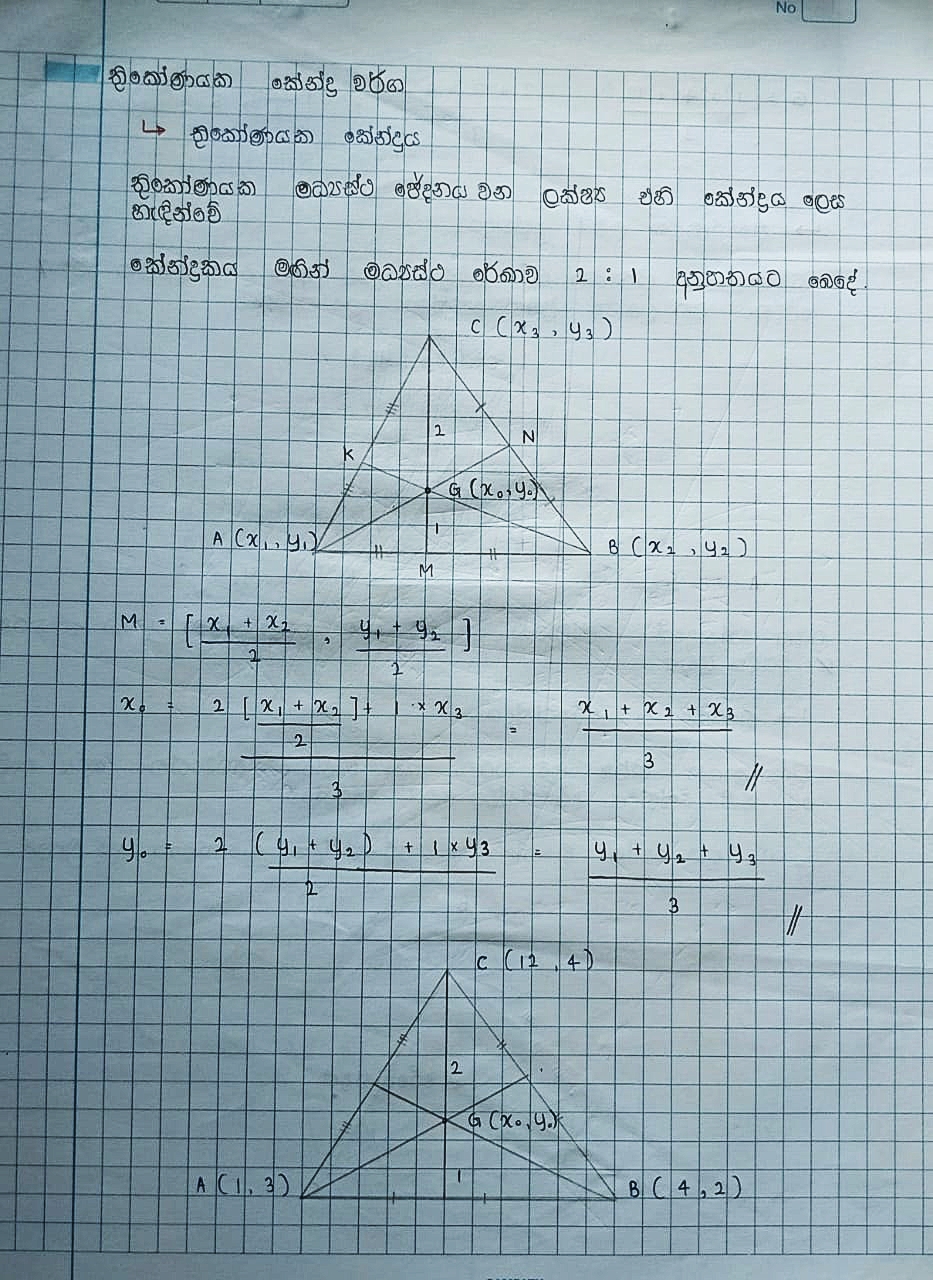 No
ත්‍රිකෝණයක කේන්ද්‍ර වර්ග
↳ ත්‍රිකෝණයක කේන්ද්‍රය
ත්‍රිකෝණයක මධ්‍යස්ථ ඡේදනය වන ලක්ෂ්‍ය එහි කේන්ද්‍රය ලෙස
හැඳින්වේ
කේන්ද්‍රකය මගින් මධ්‍යස්ථ රේඛාව 2 : 1 අනුපාතයට බෙදේ.
C (x₃ , y₃)
2
N
K
G (x₀, y₀)
A (x₁, y₁)
1
B (x₂ , y₂)
M
M = [ (x₁ + x₂)/2 , (y₁ + y₂)/2 ]
x₀ = (2 [(x₁ + x₂)/2] + 1 × x₃)/3 = (x₁ + x₂ + x₃)/3 //
y₀ = 2 (y₁ + y₂) + 1 × y₃ / 2 = (y₁ + y₂ + y₃)/3 //
C (12 , 4)
2
G (x₀, y₀)
1
A (1, 3)
B (4 , 2)